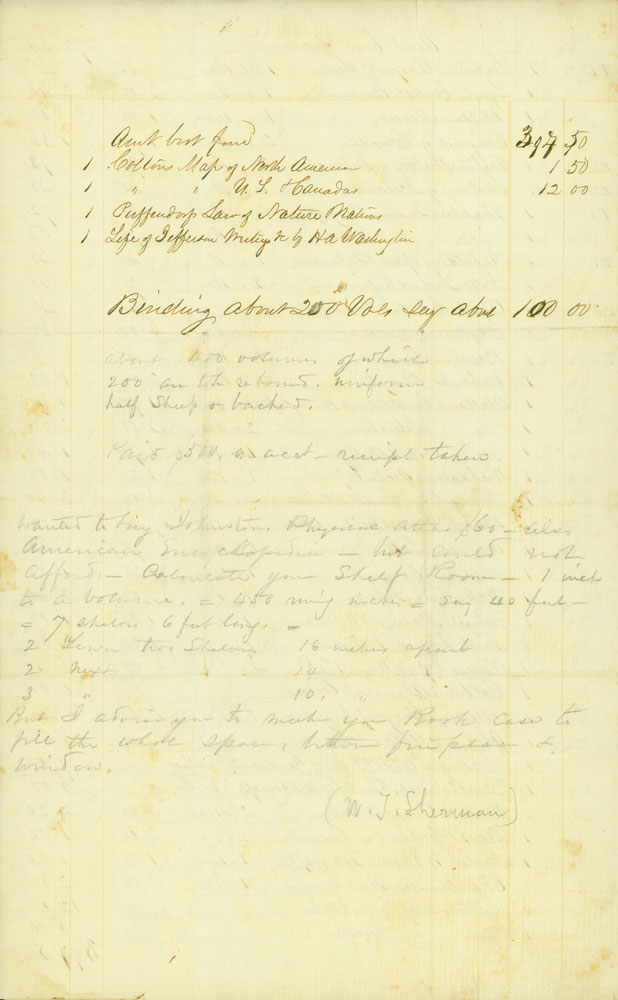 Amt brot ford 397 50
1 Coltons Map of North America 1 50
1 " " U.S. & Canadas 12 00
1 Puffendorfs Law of Nature & Nations
1 Life of Jefferson Writings &c by H A Washington
Binding about 200 Vols say about 100 00
about 400 volumes of which
200 are to be rebound. uniform
half Sheep & backed.
Paid $500. on acct - receipt taken.
Wanted to buy Johnstons Physical Atlas $60 - also
American Encyclopedia - but could not
afford. - Calculate your Shelf Room - 1 inch
to a volume. = 450 inches = say 40 feet -
= 7 shelves 6 feet long. -
2 Lower two Shelves 16 inches apart
2 Next 14 "
3 " 10. "
But I advise you to make your Book case to
fill the whole space, between fireplace &
window.
(W. T. Sherman)